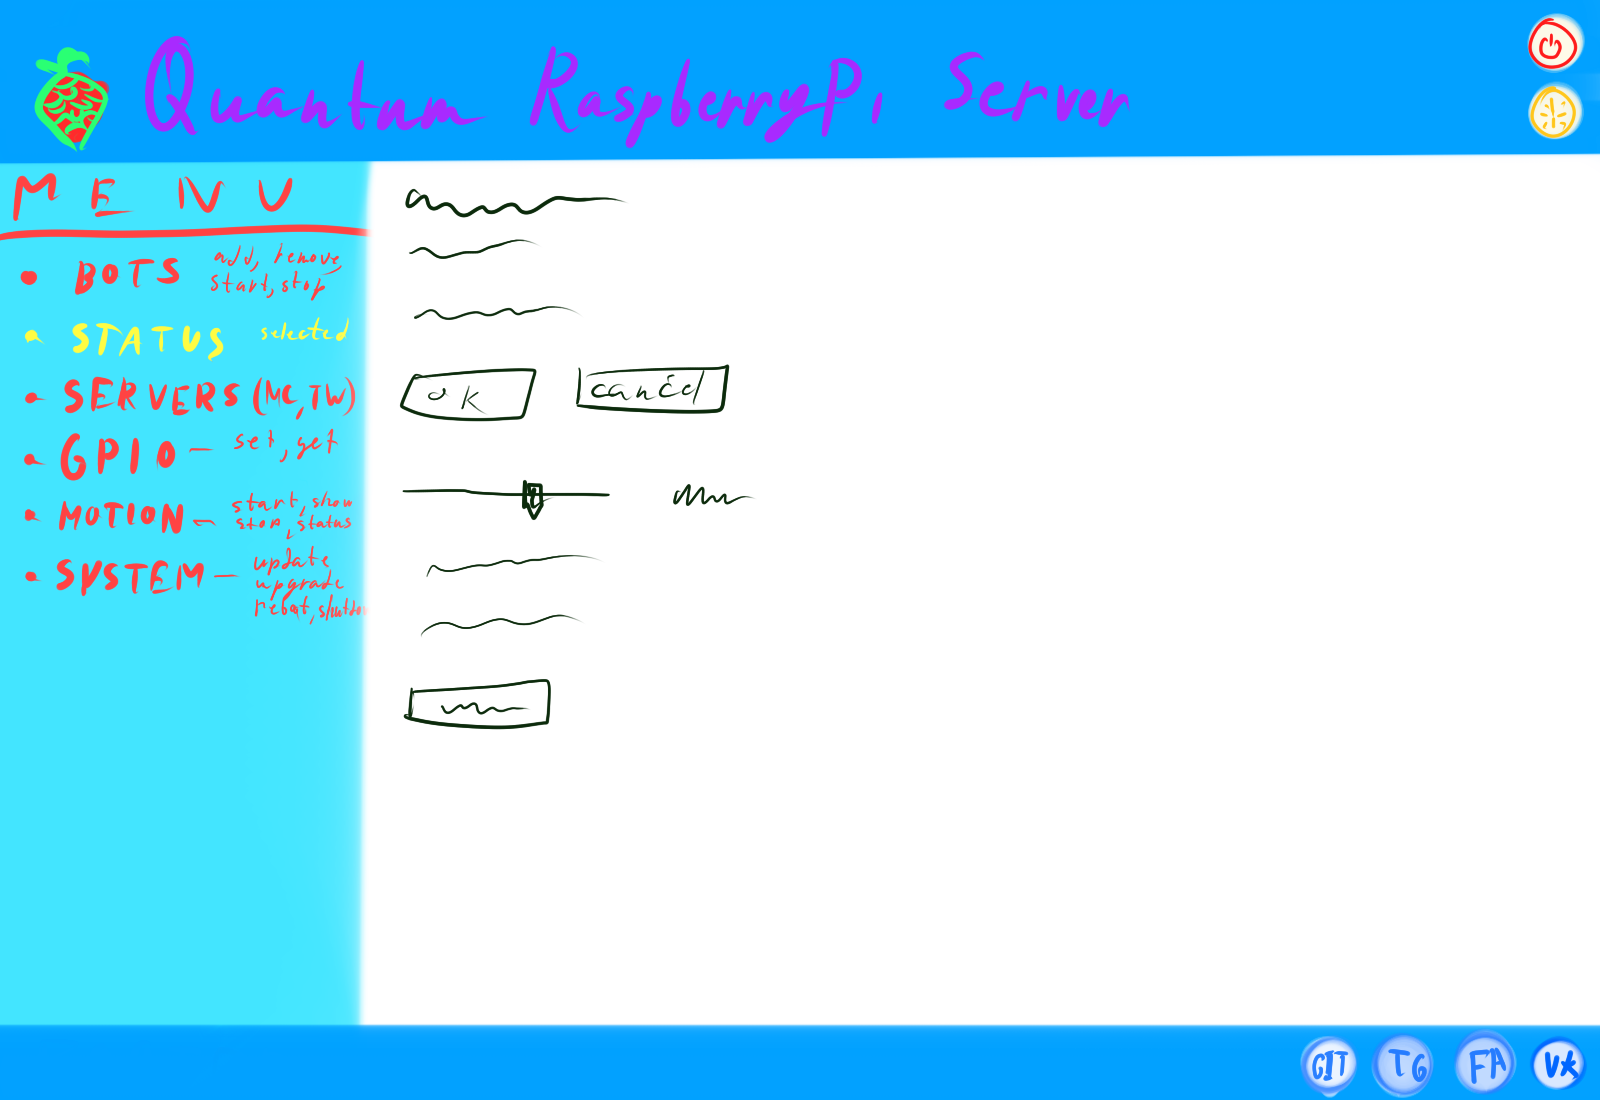 Quantum RaspberryPi Server
MENU
• BOTS add, remove,
start, stop
• STATUS selected
• SERVERS (MC, TW)
• GPIO — set, get
• MOTION — start, show
stop, status
• SYSTEM — update
upgrade
reboot, shutdown
ok cancel
GIT TG FA VK